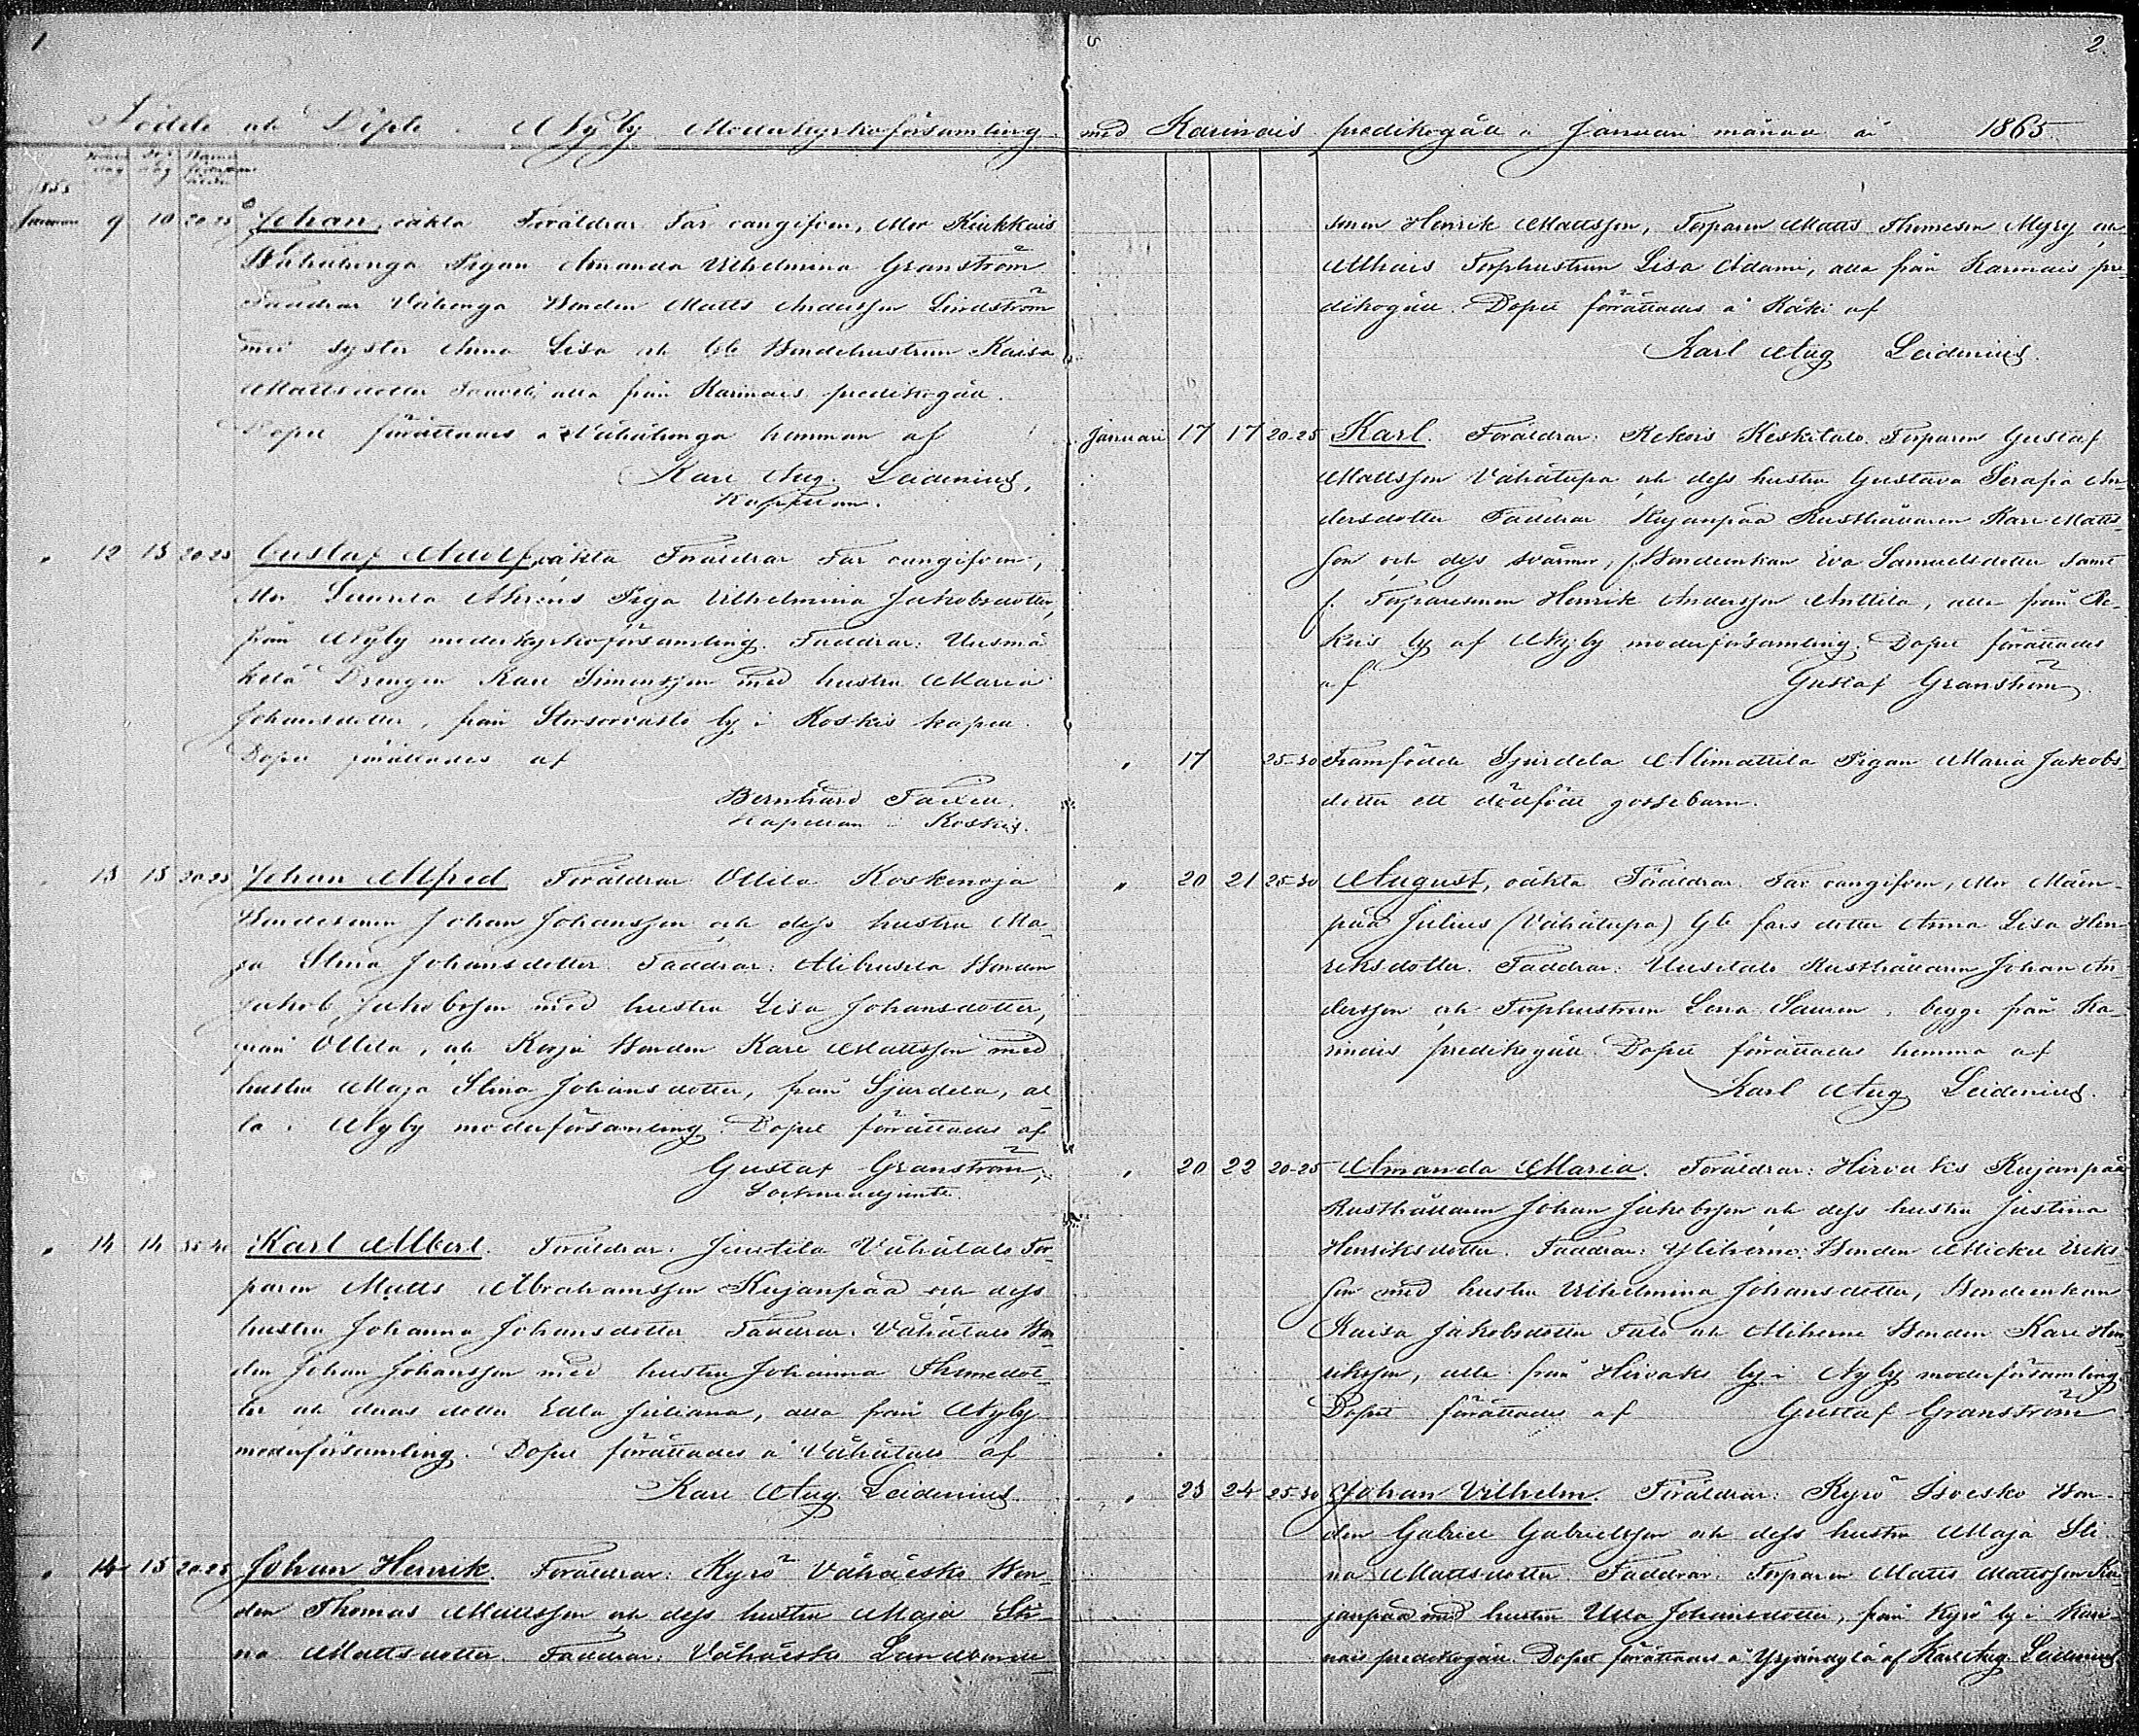 1
Födde och Döpte i Nyby Moderkyrkoförsamling
Januari 9 10 20-25 Johan, oäkta Föräldrar Far oangifven, Mor Kiukkais
Vähähonga Pigan Amanda Vilhelmina Granström
Faddrar Vähonga Bonden Matts Andersson Lindström
med syster Anna Lisa och Bondehustrun Kaisa
Mattsdotter alla från Karinais predikogäll.
Dopet förättades å Vähähonga hemman af
Karl Aug. Leidenius,
Kapellan.
" 12 15 20-25 Gustaf Adolf, oäkta Föräldrar Far oangifven,
Mor Laurila Ahrens Piga Vilhelmina Jakobsdotter,
från Nyby moderkyrkoförsamling. Faddrar: Uusmä
kelä Drengen Karl Simonsson med hustru Maria
Johansdotter, från Storsorvasto by i Koskis kapell.
Dopet förättades af
Bernhard Taxell,
Kapellan i Koskis.
" 13 15 20-25 Johan Alfred Föräldrar Ollila Koskenoja
Bondesonen Johan Johansson och dess hustru Ma-
ja Stina Johansdotter. Faddrar: Alihuusila Bonden
Jakob Jakobsson med hustru Lisa Johansdotter,
från Ollila, och Korja Bonden Karl Mattsson med
hustru Maja Stina Johansdotter, från Sjurdela, al-
la i Nyby moderförsamling. Dopet förättades af
Gustaf Granström,
Sockneadjunkt.
" 14 14 35-40 Karl Albert. Föräldrar: Juutila Vähätalo Tor-
paren Matts Abrahamsson Kujanpää och dess
hustru Johanna Johansdotter Faddrar: Vähätalo Bon-
den Johan Johansson med hustru Johanna Thomedot-
ter och deras dotter Edla Juliana, alla från Nyby
moderförsamling. Dopet förättades å Vähätalo af
Karl Aug. Leidenius.
" 14 15 20-25 Johan Henrik. Föräldrar: Kyrö Vähäeskо Bon-
den Thomas Mattsson och dess hustru Maja Sti-
na Mattsdotter. Faddrar: Vähäesko Landbonde
2.
med Karinais predikogäll i Januari månad år 1865.
sonen Henrik Mattsson, Torparen Matts Thomesson Myry och
Allhais Torphustrun Lisa Adami, alla från Karinais pre-
dikogäll. Dopet förättades å Käki af
Karl Aug Leidenius.
Januari 17 17 20-25 Karl. Föräldrar: Rekois Keskitalo Torparen Gustaf
Mattsson Vähätupa och dess hustru Gustava Serafia An-
dersdotter Faddrar Kujanpää Rusthållaren Karl Matts-
son och dess svärmor, f. Bondeenkan Eva Samuelsdotter samt
f. Torparesonen Henrik Andersson Anttila, alla från Re-
kois by af Nyby moderförsamling. Dopet förättades
af Gustaf Granström
" 17 25-30 Framfödde Sjurdela Alimattila Pigan Maria Jakobs-
dotter ett dödfödt gossebarn.
" 20 21 25-30 August, oäkta Föräldrar. Far oangifven, Mor Mäen-
pää Julius (Vähätupa) Gb fars dotter Anna Lisa Hen-
riksdotter. Faddrar: Uusitalo Rusthållaren Johan An-
dersson och Torphustrun Lena Sauren, begge från Ka-
rinais predikogäll. Dopet förättades hemma af
Karl Aug Leidenius.
" 20 22 20-25 Amanda Maria. Föräldrar: Hirvaks Kujanpää
Rusthållaren Johan Jakobsson och dess hustru Justina
Henriksdotter. Faddrar: Yliherne Bonden Mickel Eriks-
son med hustru Vilhelmina Johansdotter, Bondeenkan
Kaisa Jakobsdotter Talo och Aliherne Bonden Karl Hen-
riksson, alla från Hirvaks by i Nyby moderförsamling
Dopet förättades af Gustaf Granström
" 23 24 25-30 Johan Vilhelm. Föräldrar: Kyrö Isoesko Bon-
den Gabriel Gabrielsson och dess hustru Maja Sti-
na Mattsdotter Faddrar Torparen Matts Mattsson Ku-
janpää med hustru Ulla Johansdotter, från Kyrö by i Kari-
nais predikogäll. Dopet förättades å Yrjänäylä af Karl Aug. Leidenius